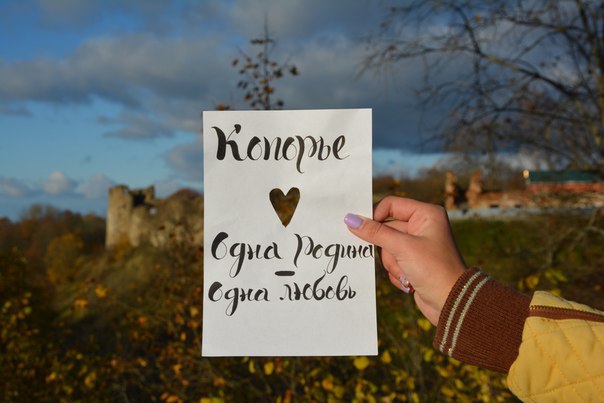 Копорье
Одна Родина
–
Одна любовь